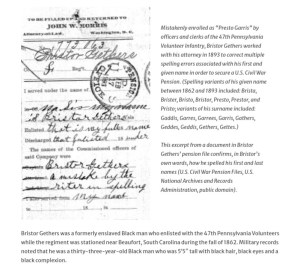 TO BE FILLED UP AND RETURNED TO
JOHN W. MORRIS
Washington, D. C.
Bristor Gethers
I served under the name of
my name
is Bristor Gethers
Enlisted that is my
Discharged
The names of the Commissioned officers of
said Company were
Bristor Gethers
a mistake by the
writer in spelling
my name
Mistakenly enrolled as "Presto Garris" by
officers and clerks of the 47th Pennsylvania
Volunteer Infantry, Bristor Gethers worked
with his attorney in 1893 to correct multiple
spelling errors associated with his first and
given name in order to secure a U.S. Civil War
Pension. (Spelling variants of his given
name between 1862 and 1893 included: Brista,
Brister, Bristo, Bristor, Presto, Prestor, and
Priste; variants of his surname included:
Gaddis, Garres, Garress, Garris, Gathers,
Geddes, Geddis, Gethers, Gettes.)
This excerpt from a document in Bristor
Gethers' pension file confirms, in Bristor's
own words, how he spelled his first and last
names (U.S. Civil War Pension Files, U.S.
National Archives and Records
Administration, public domain).
Bristor Gethers was a formerly enslaved Black man who enlisted with the 47th Pennsylvania Volunteers
while the regiment was stationed near Beaufort, South Carolina during the fall of 1862. Military records
noted that he was a thirty-three-year-old Black man who was 5'5" tall with black hair, black eyes and a
black complexion.